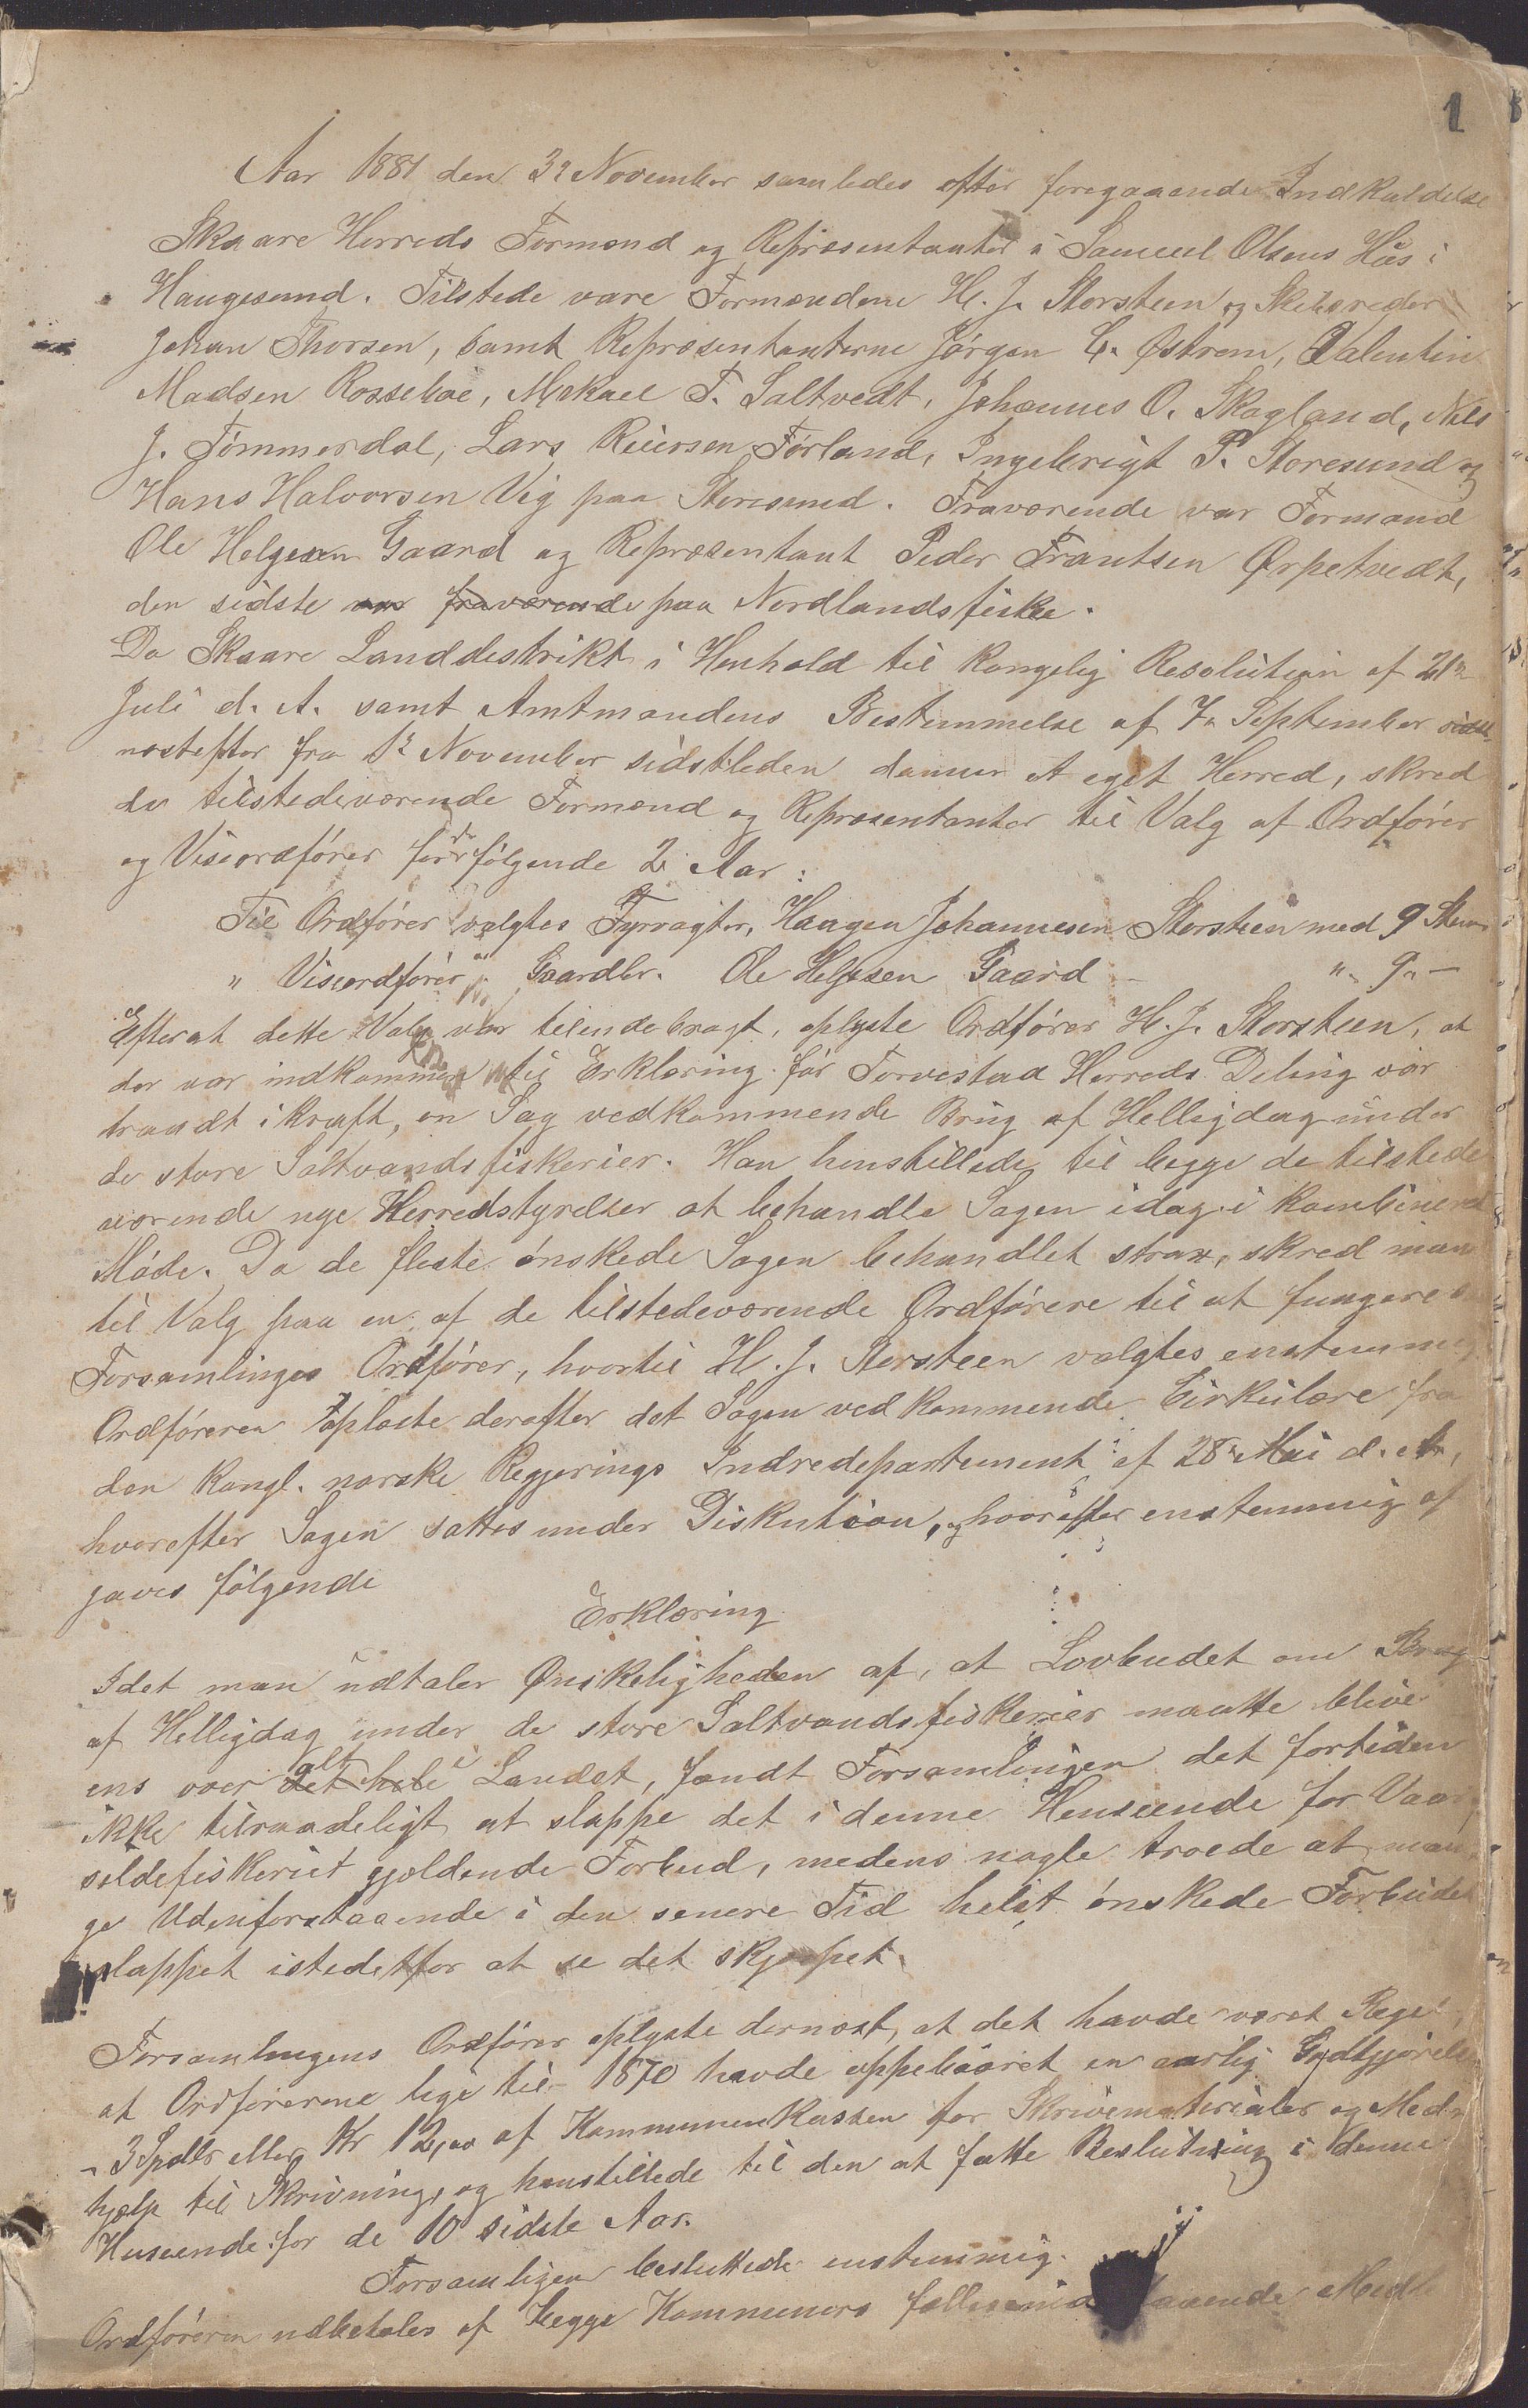 1
Aar 1881 den 3n November samledes efter foregaaende Indkaldelse
Skaare Herreds Formænd og Repræsentanter i Samuel Olsens Hus i
Haugesund. Tilstede vare Formændene H. J. Storsteen og Skibsreder
Johan Thorsen, samt Repræsentanterne Jørgen C. Østrem, Valentin
Madsen Rossebøe, Mikael T. Saltvedt, Johannes O. Skagland, Nils
J. Tømmerdal, Lars Reiersen Førland, Ingebrigt P. Storesund og
Hans Halvorsen Vig paa Storesund. Fraværende var Formand
Ole Helgesen Gaard og Repræsentant Peder Frantsen Ørpetvedt,
den sidste var fraværende paa Nordlandsfiske.
Da Skaare Landdistrikt i Henhold til Kongelig Resolution af 21n
Juli d. A. samt Amtmandens Bestemmelse af 7n September
næstefter fra 1n November sidstleden danner et eget Herred, skred
de tilstedeværende Formænd og Repræsentanter til Valg af Ordfører
og Viseordfører for de følgende 2 Aar:
Til Ordfører valgtes Fyrvagter, Haagen Johannesen Storsteen med 9 Stem
" Viseordfører " Gaardbr. Ole Helgesen Gaard — " 9 " —
Efterat dette Valg var tilendebragt, oplyste Ordfører H. J. Storsteen, at
der var indkommen til Erklæring før Torvestad Herreds Deling var
traadt i kraft, en Sag vedkommende Brug af Helligdag under
de store Saltvandsfiskerier. Han henstillede til begge de tilstede
værende nye Herredstyrelser at behandle Sagen idag i kombineret
Møde. Da de fleste ønskede Sagen behandlet strax, skred man
til Valg paa en af de tilstedeværende Ordførere til at fungere
Forsamlinges Ordfører, hvortil H. J. Storsteen valgtes enstemmig
Ordføreren oplæste derefter det Sagen vedkommende Cirkulære fra
den Kongl. norske Regjerings Indredepartement af 28n Mai d. A,
hvorefter Sagen sattes under Diskution, og hvorefter enstemmig af
gaves følgende
Erklæring
Idet man udtaler Ønskeligheden af, at Lovbudet om Brug
af Helligdag under de store Saltvandsfiskerier maatte blive
ens over det hele alt i Landet, fandt Forsamlingen det fortiden
ikke tilraadeligt at slappe det i denne Henseende for Vaar
sildefiskeriet gjældende Forbud, medens nogle troede at man
ge Udenforstaaende i den senere Tid helst ønskede Forbudet
slappet istedetfor at se det skjærpet.
Forsamlingens Ordfører oplyste dernæst, at det havde været Regel,
at Ordførerne lige til 1870 havde oppebaaret en aarlig Godtgjørelse
3 Spdlr eller Kr 12,00 af Kommunekassen for Skrivematerialer og Med-
hjælp til Skrivning, og henstillede til den at fatte Beslutning i denne
Henseende for de 10 sidste Aar.
Forsamligen besluttede enstemmig.
Ordføreren udbetales af begge Kommuners